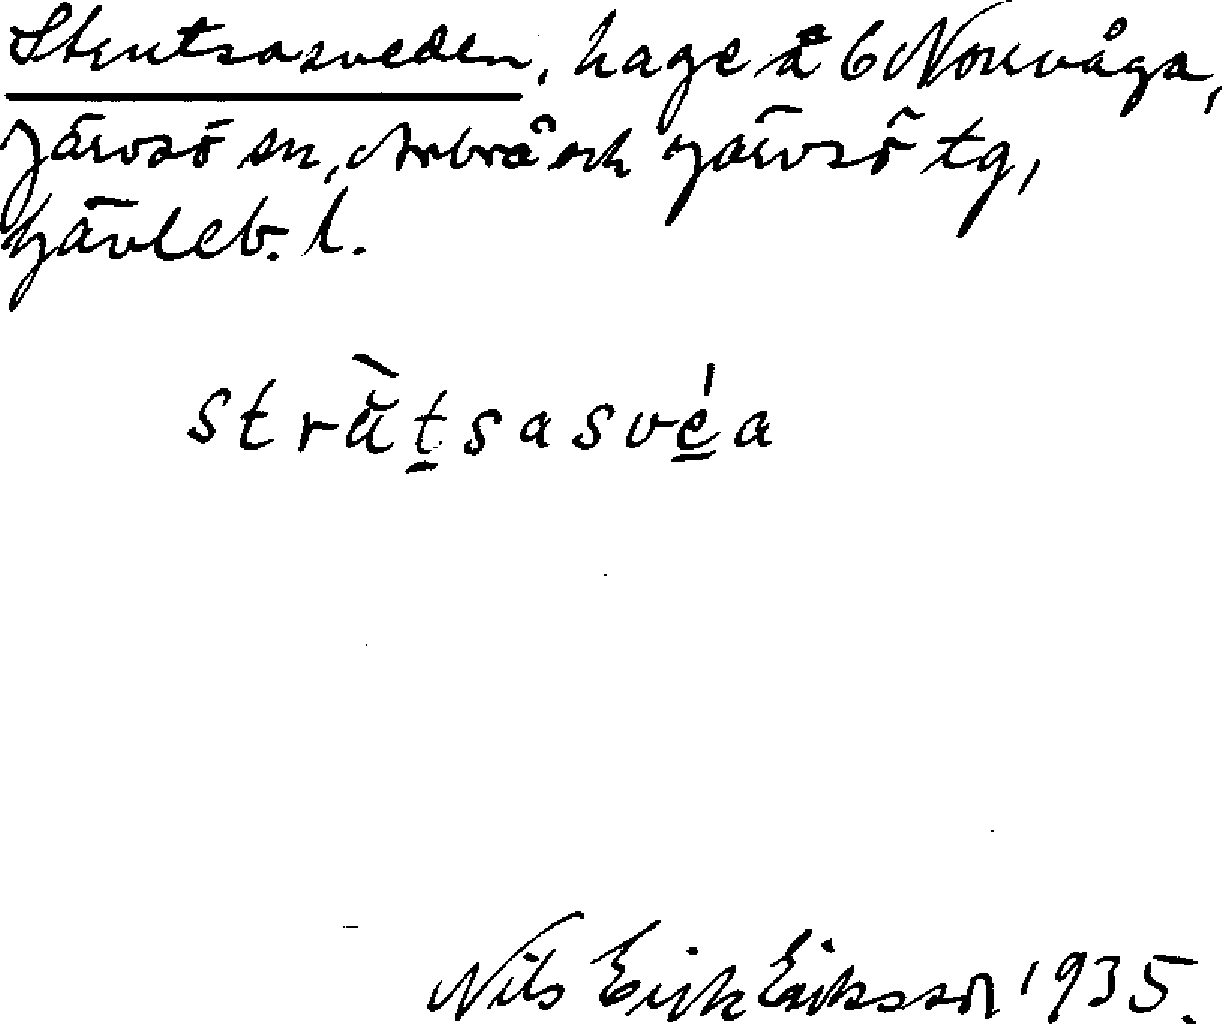 Strutsasveden, hage å 6 Norrvåga,
Järvsö sn, Arbrå och Järvsö tg,
Gävleb. l.
strŭ̀tsasvéa
Nils Erik Eriksson 1935.